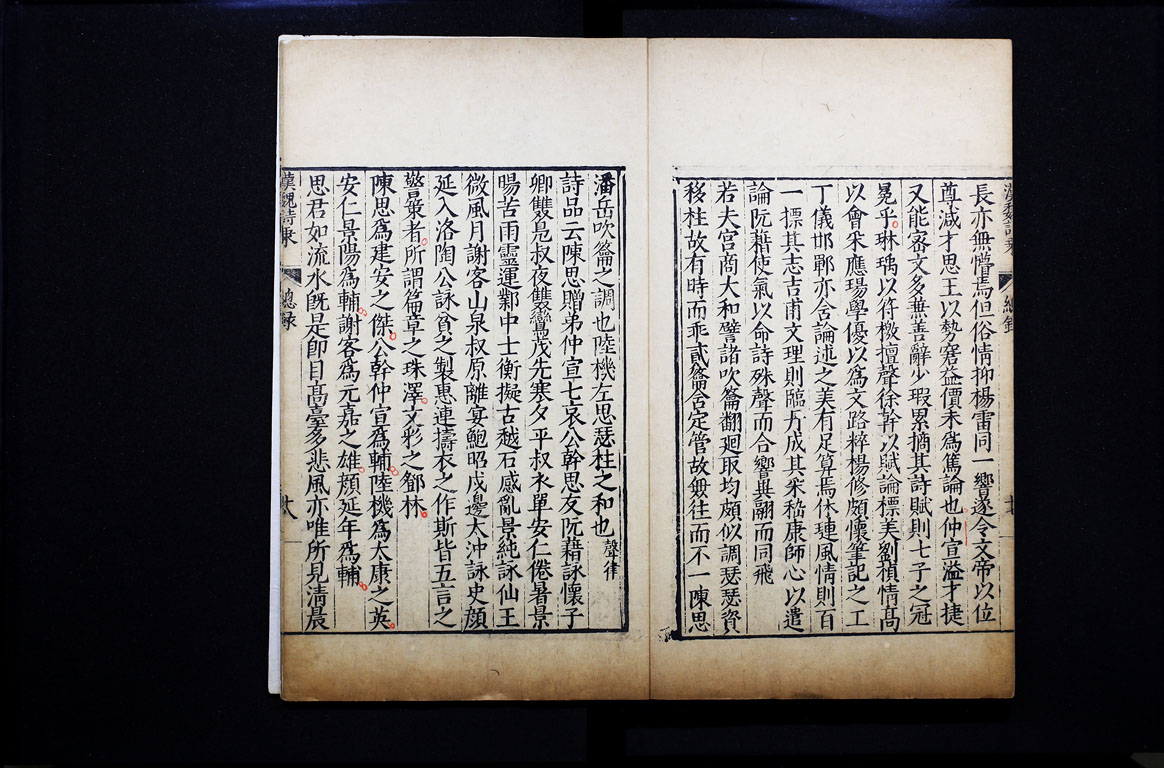 漢魏詩乘
總錄
長亦無懵焉但俗情抑楊雷同一響遂令文帝以位
尊减才思王以勢窘益價未爲篤論也仲宣溢才捷
又能密文多兼善辭少瑕累摘其詩賦則七子之冠
冕乎琳瑀以符檄擅聲徐幹以賦論標美劉楨情髙
以會采應瑒學優以爲文路粹楊修頗懷筆記之工
丁儀邯鄲亦含論述之美有足算焉休璉風情則百
一摽其志吉甫文理則臨丹成其采嵇康師心以遣
論阮藉使氣以命詩殊聲而合響異翮而同飛
若夫宮商大和譬諸吹籥翻迴取均頗似調瑟瑟資
移柱故有時而乖貳籥含定管故無往而不一陳思
潘岳吹籥之調也陸機左思瑟柱之和也聲律
詩品云陳思贈弟仲宣七哀公幹思友阮藉詠懷子
卿雙凫叔夜雙鸞茂先寒夕平叔衣單安仁倦暑景
陽苦雨靈運鄴中士衡擬古越石感亂景純詠仙王
微風月謝客山泉叔原離宴鮑昭戍邊太沖詠史顔
延入洛陶公詠貧之製惠連擣衣之作斯皆五言之
警策者所謂篇章之珠澤文彩之鄧林
陳思爲建安之傑公幹仲宣爲輔陸機爲太康之英
安仁景陽爲輔謝客爲元嘉之雄顔延年爲輔
思君如流水旣是卽目髙臺多悲風亦唯所見淸晨
漢魏詩乘
總錄
廿八